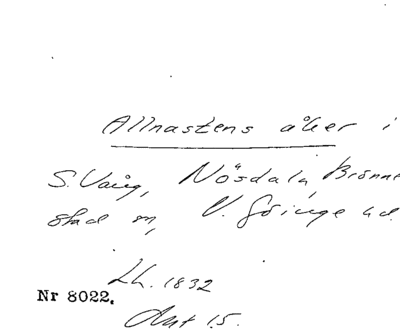 Allmastens åker i
S. Vång, Nösdala, Brönne
stad sn, V. Göinge hd.
Lh. 1832
Nr 8022.
Akt 15.